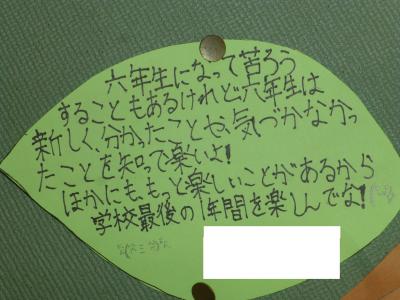 六年生になって苦ろう
することもあるけれど六年生は
新しく、分かったことや、気づかなかっ
たことを知って楽しいよ!
ほかにも、もっと楽しいことがあるから
学校最後の1年間を楽しんでな!